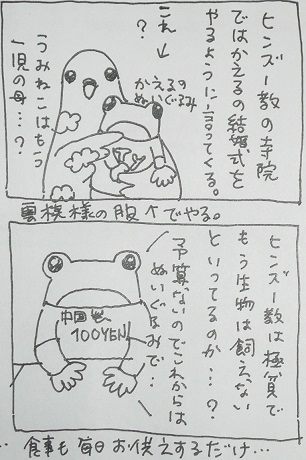 ヒンズー教の寺院
ではかえるの結婚式を
やるように言ってくる。
これ↓
?
かえるの
ぬいぐるみ
うみねこはもう
一児の母…?
雲模様の服↑でやる。
ヒンズー教は極貧で
もう生物は飼えない
といってるのか…?
予算ないのでこれからは
ぬいぐるみで…
中国
100YEN
… 食事も毎日お供えするだけ…